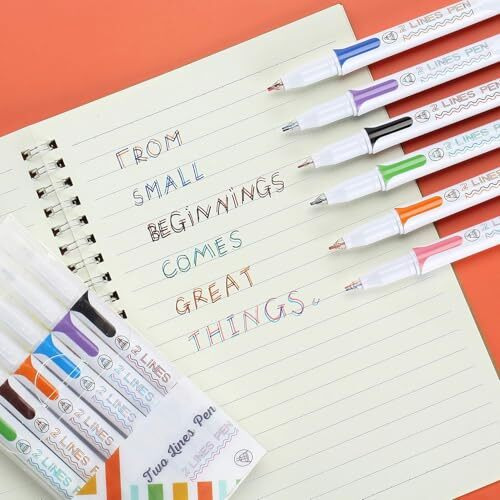 FROM
SMALL
BEGINNINGS
COMES
GREAT
THINGS.
2 LINES PEN
2 LINES PEN
2 LINES PEN
2 LINES PEN
2 LINES PEN
2 LINES PEN
2 LINES
2 LINES
2 LINES
2 LINES
2 LINES
Two Lines Pen
2 LINES PEN